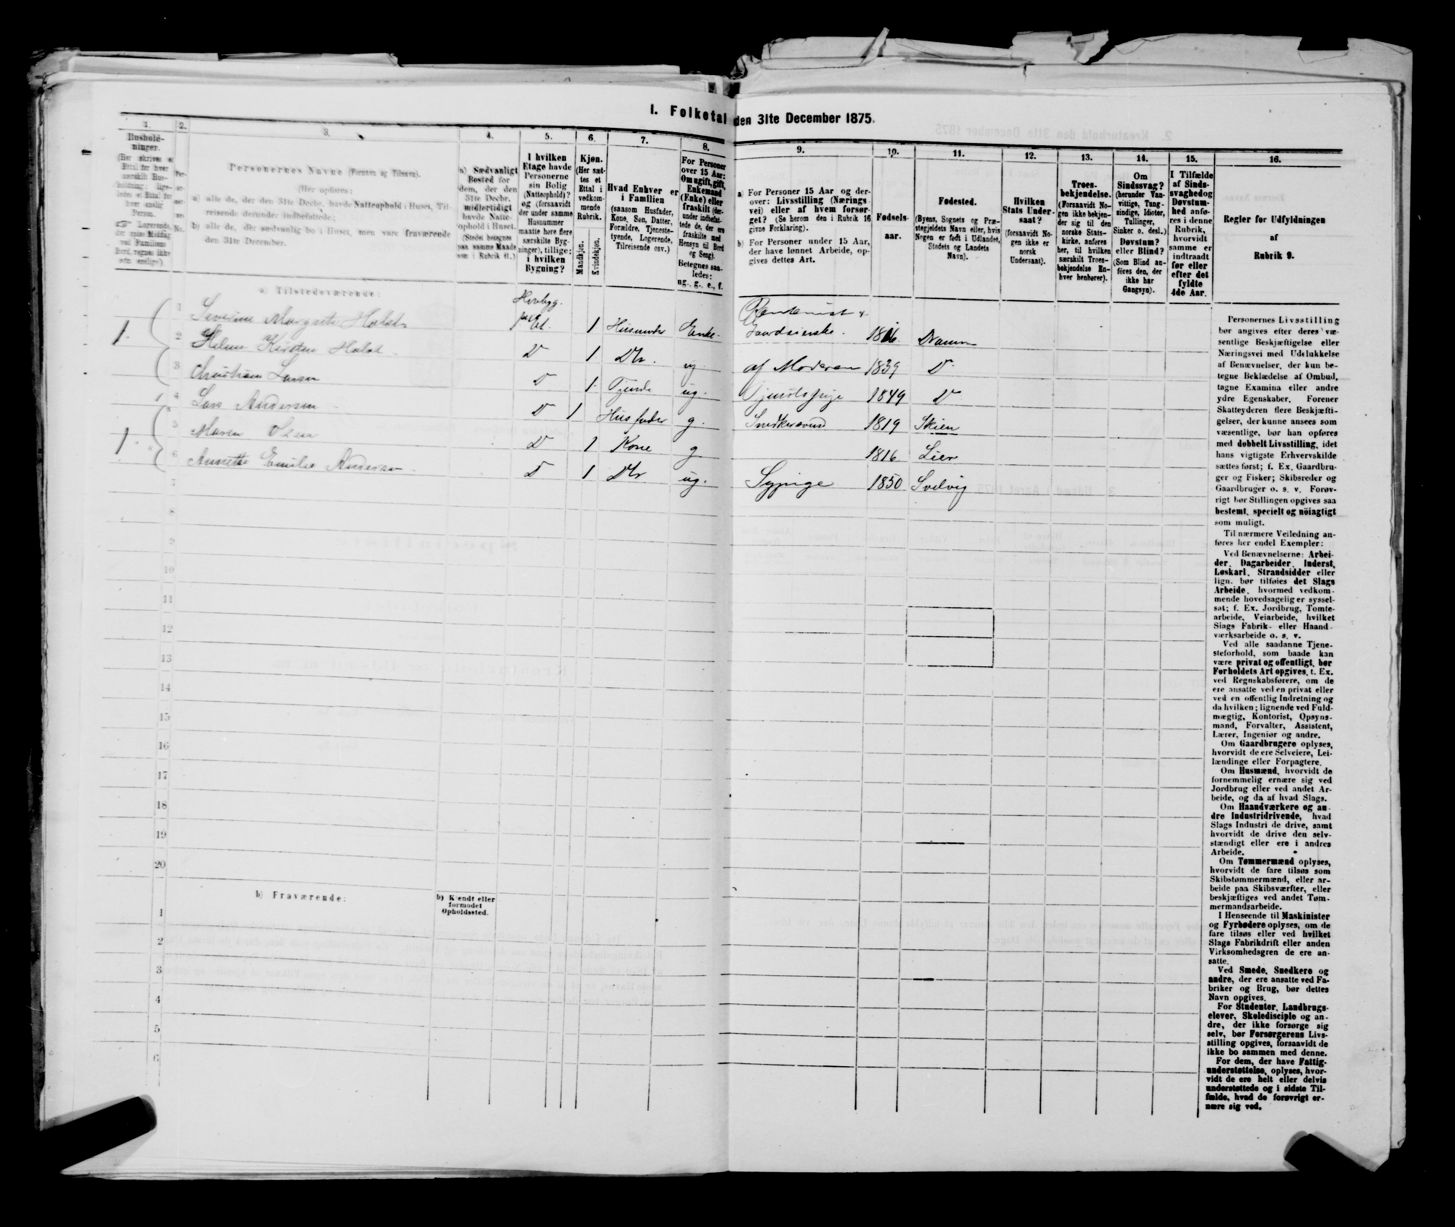 I. Folketal den 31te December 1875.
1. 2. 3. 4. 5. 6. 7. 8. 9. 10. 11. 12. 13. 14. 15. 16.
Personernes Navne (Fornavn og Tilnavn).
(Her opføres:
a) alle de, der den 31te Decbr. havde Natteophold i Huset, Tilreisende derunder indbefattede;
b) alle de, der sædvanlig bo i Huset, men vare fraværende den 31te December.
a) Sædvanligt
Bosted for
dem, der den
31te Decbr.
midlertidigt
havde Natte-
ophold i Huset.
I hvilken
Etage havde
Personerne
sin Bolig
(Natteophold)?
og (forsaavidt
der under samme
Husnummer
maatte høre flere
særskilte Byg-
ninger), tillige:
i hvilken
Bygning?
Kjøn.
(Her sæt-
tes et
Ettal i
vedkom-
mende
Rubrik.
Mandkjøn.
Kvindekjøn.
Hvad Enhver er
i Familien
(saasom Husfader,
Kone, Søn, Datter,
Forældre, Tjeneste-
tyende, Logerende,
Tilreisende osv.)
For Personer
over 15 Aar:
Om ugift, gift,
Enkemand
(Enke) eller
fraskilt
ug., g., e., f.
a) For Personer 15 Aar og der-
over: Livsstilling (Nærings-
vei) eller af hvem forsør-
get? (Se herom den i Rubrik 16
givne Forklaring).
b) For Personer under 15 Aar,
der have lønnet Arbeide, op-
gives dettes Art.
Fødsels-
aar.
Fødested.
(Byens, Sognets og Præ-
stegjeldets Navn eller, hvis
Nogen er født i Udlandet,
Stedets og Landets
Navn).
Hvilken
Stats Under-
saat?
(forsaavidt No-
gen ikke er
norsk
Undersaat).
Troes-
bekjendelse.
(Forsaavidt No-
gen ikke bekjen-
der sig til den
norske Stats-
kirke, anføres
her, til hvilken
særskilt Troes-
bekjendelse En-
hver henhører).
Om
Sindssvag?
(herunder Van-
vittige, Tung-
sindige, Idioter,
Tullinger,
Sinker o. desl.)
Døvstum?
eller Blind?
(Som Blind an-
føres den, der
ikke har
Gangsyn).
I Tilfælde
af Sinds-
svaghed og
Døvstum-
hed anfø-
res i denne
Rubrik,
hvorvidt
samme er
indtraadt
før eller
efter det
fyldte
4de Aar.
Regler for Udfyldningen
af
Rubrik 9.
a) Tilstedeværende:
Hovbyg.
Rentenist &
1. 1 Severine Margrete Holst 1 Husmoder Enke Gaardeierske. 1816 Dramm
2 Helene Kirsten Holst D 1 Dtr. ug af Moderen 1839 D
3 Christiane Larsen D 1 Tjende ug. Tjenestepige 1849 D
1. 4 Lars Andersen D 1 Husfader g. Snedkersvend 1819 Skien
5 Maren Olsen D 1 Kone g 1816 Lier
6 Annette Emilie Andersen D 1 Dtr ug. Sypige 1850 Svelvig
7
8
9
10
11
12
13
14
15
16
17
18
19
20
b) Fraværende:
b) Kjendt eller
formodet
Opholdssted.
1
2
3
4
5
6
Personernes Livsstilling
bør angives efter deres væ-
sentlige Beskjæftigelse eller
Næringsvei med Udelukkelse
af Benævnelser, der kun be-
tegne Beklædelse af Ombud,
tagne Examina eller andre
ydre Egenskaber. Forener
Skatteyderen flere Beskjæfti-
gelser, der kunne ansees som
væsentlige, bør han opføres
med dobbelt Livsstilling, idet
hans vigtigste Erhvervskilde
sættes først; f. Ex. Gaardbru-
ger og Fisker; Skibsreder og
Gaardbruger o. s. v. Forøv-
rigt bør Stillingen opgives saa
bestemt, specielt og nöiagtigt
som muligt.
Til nærmere Veiledning an-
føres her endel Exempler:
Ved Benævnelserne: Arbei-
der, Dagarbeider, Inderst,
Løskarl, Strandsidder eller
lign. bør tilføies det Slags
Arbeide, hvormed vedkom-
mende hovedsagelig er syssel-
sat; f. Ex. Jordbrug, Tomte-
arbeide, Veiarbeide, hvilket
Slags Fabrik- eller Haand-
værksarbeide o. s. v.
Ved alle saadanne Tjene-
steforhold, som baade kan
være privat og offentligt, bør
Forholdets Art opgives, t. Ex.
ved Regnskabsførere, om de
ere ansatte ved en privat eller
ved en offentlig Indretning og
da hvilken; lignende ved Fuld-
mægtig, Kontorist, Opsyns-
mand, Forvalter, Assistent,
Lærer, Ingeniør og andre.
Om Gaardbrugere oplyses,
hvorvidt de ere Selveiere, Lei-
lændinge eller Forpagtere.
Om Husmænd, hvorvidt de
fornemmelig ernære sig ved
Jordbrug eller ved andet Ar-
beide, og da af hvad Slags.
Om Haandværkere og an-
dre Industridrivende, hvad
Slags Industri de drive, samt
hvorvidt de drive den selv-
stændigt eller ere i andres
Arbeide.
Om Tømmermænd oplyses,
hvorvidt de fare tilsøs som
Skibstømmermænd, eller ar-
beide paa Skibsværfter, eller
beskjæftiges ved andet Tøm-
mermandsarbeide.
I Henseende til Maskinister
og Fyrbødere oplyses, om de
fare tilsøs eller ved hvilket
Slags Fabrikdrift eller anden
Virksomhedsgren de ere an-
satte.
Ved Smede, Snedkere og
andre, der ere ansatte ved Fa-
briker og Brug, bør dettes
Navn opgives.
For Studenter, Landbrugs-
elever, Skoledisciple og an-
dre, der ikke forsørge sig
selv, bør Forsørgerens Livs-
stilling opgives, forsaavidt de
ikke bo sammen med denne.
For dem, der have Fattig-
understøttelse, oplyses, hvor-
vidt de ere helt eller delvis
understøttede og i sidste Til-
fælde, hvad de forøvrigt er-
nære sig ved.